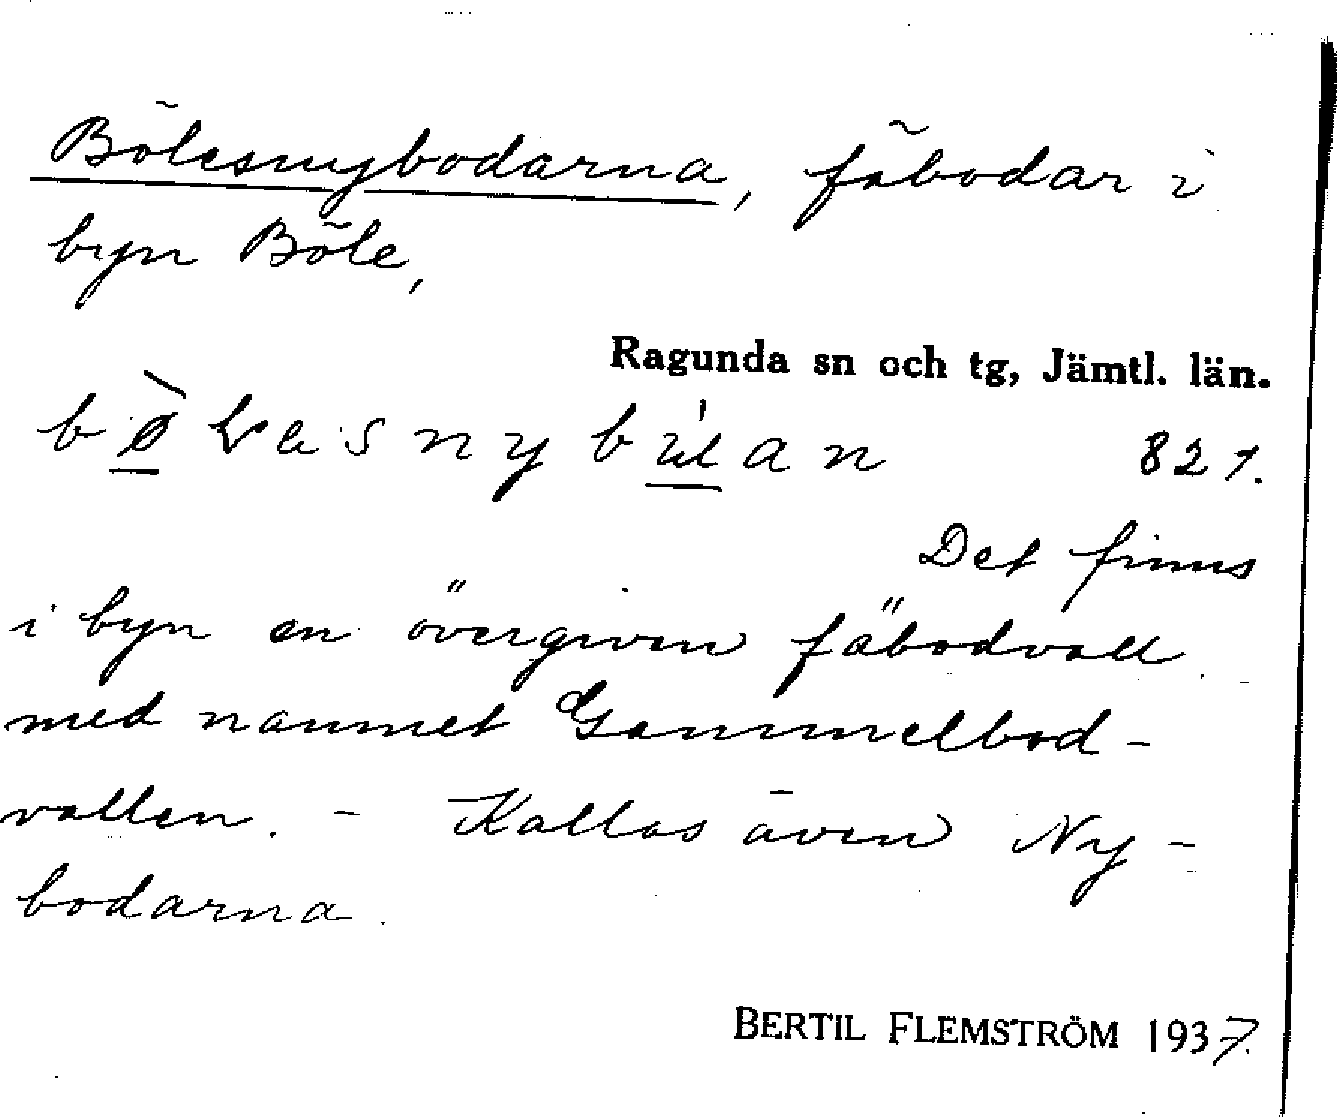 Bölesnybodarna, fäbodar i
byn Böle,
Ragunda sn och tg, Jämtl. län.
821.
Det finns
i byn en övergiven fäbodvall
med namnet Gammelbod-
vallen. - Kallas även Ny-
bodarna.
BERTIL FLEMSTRÖM 1937.